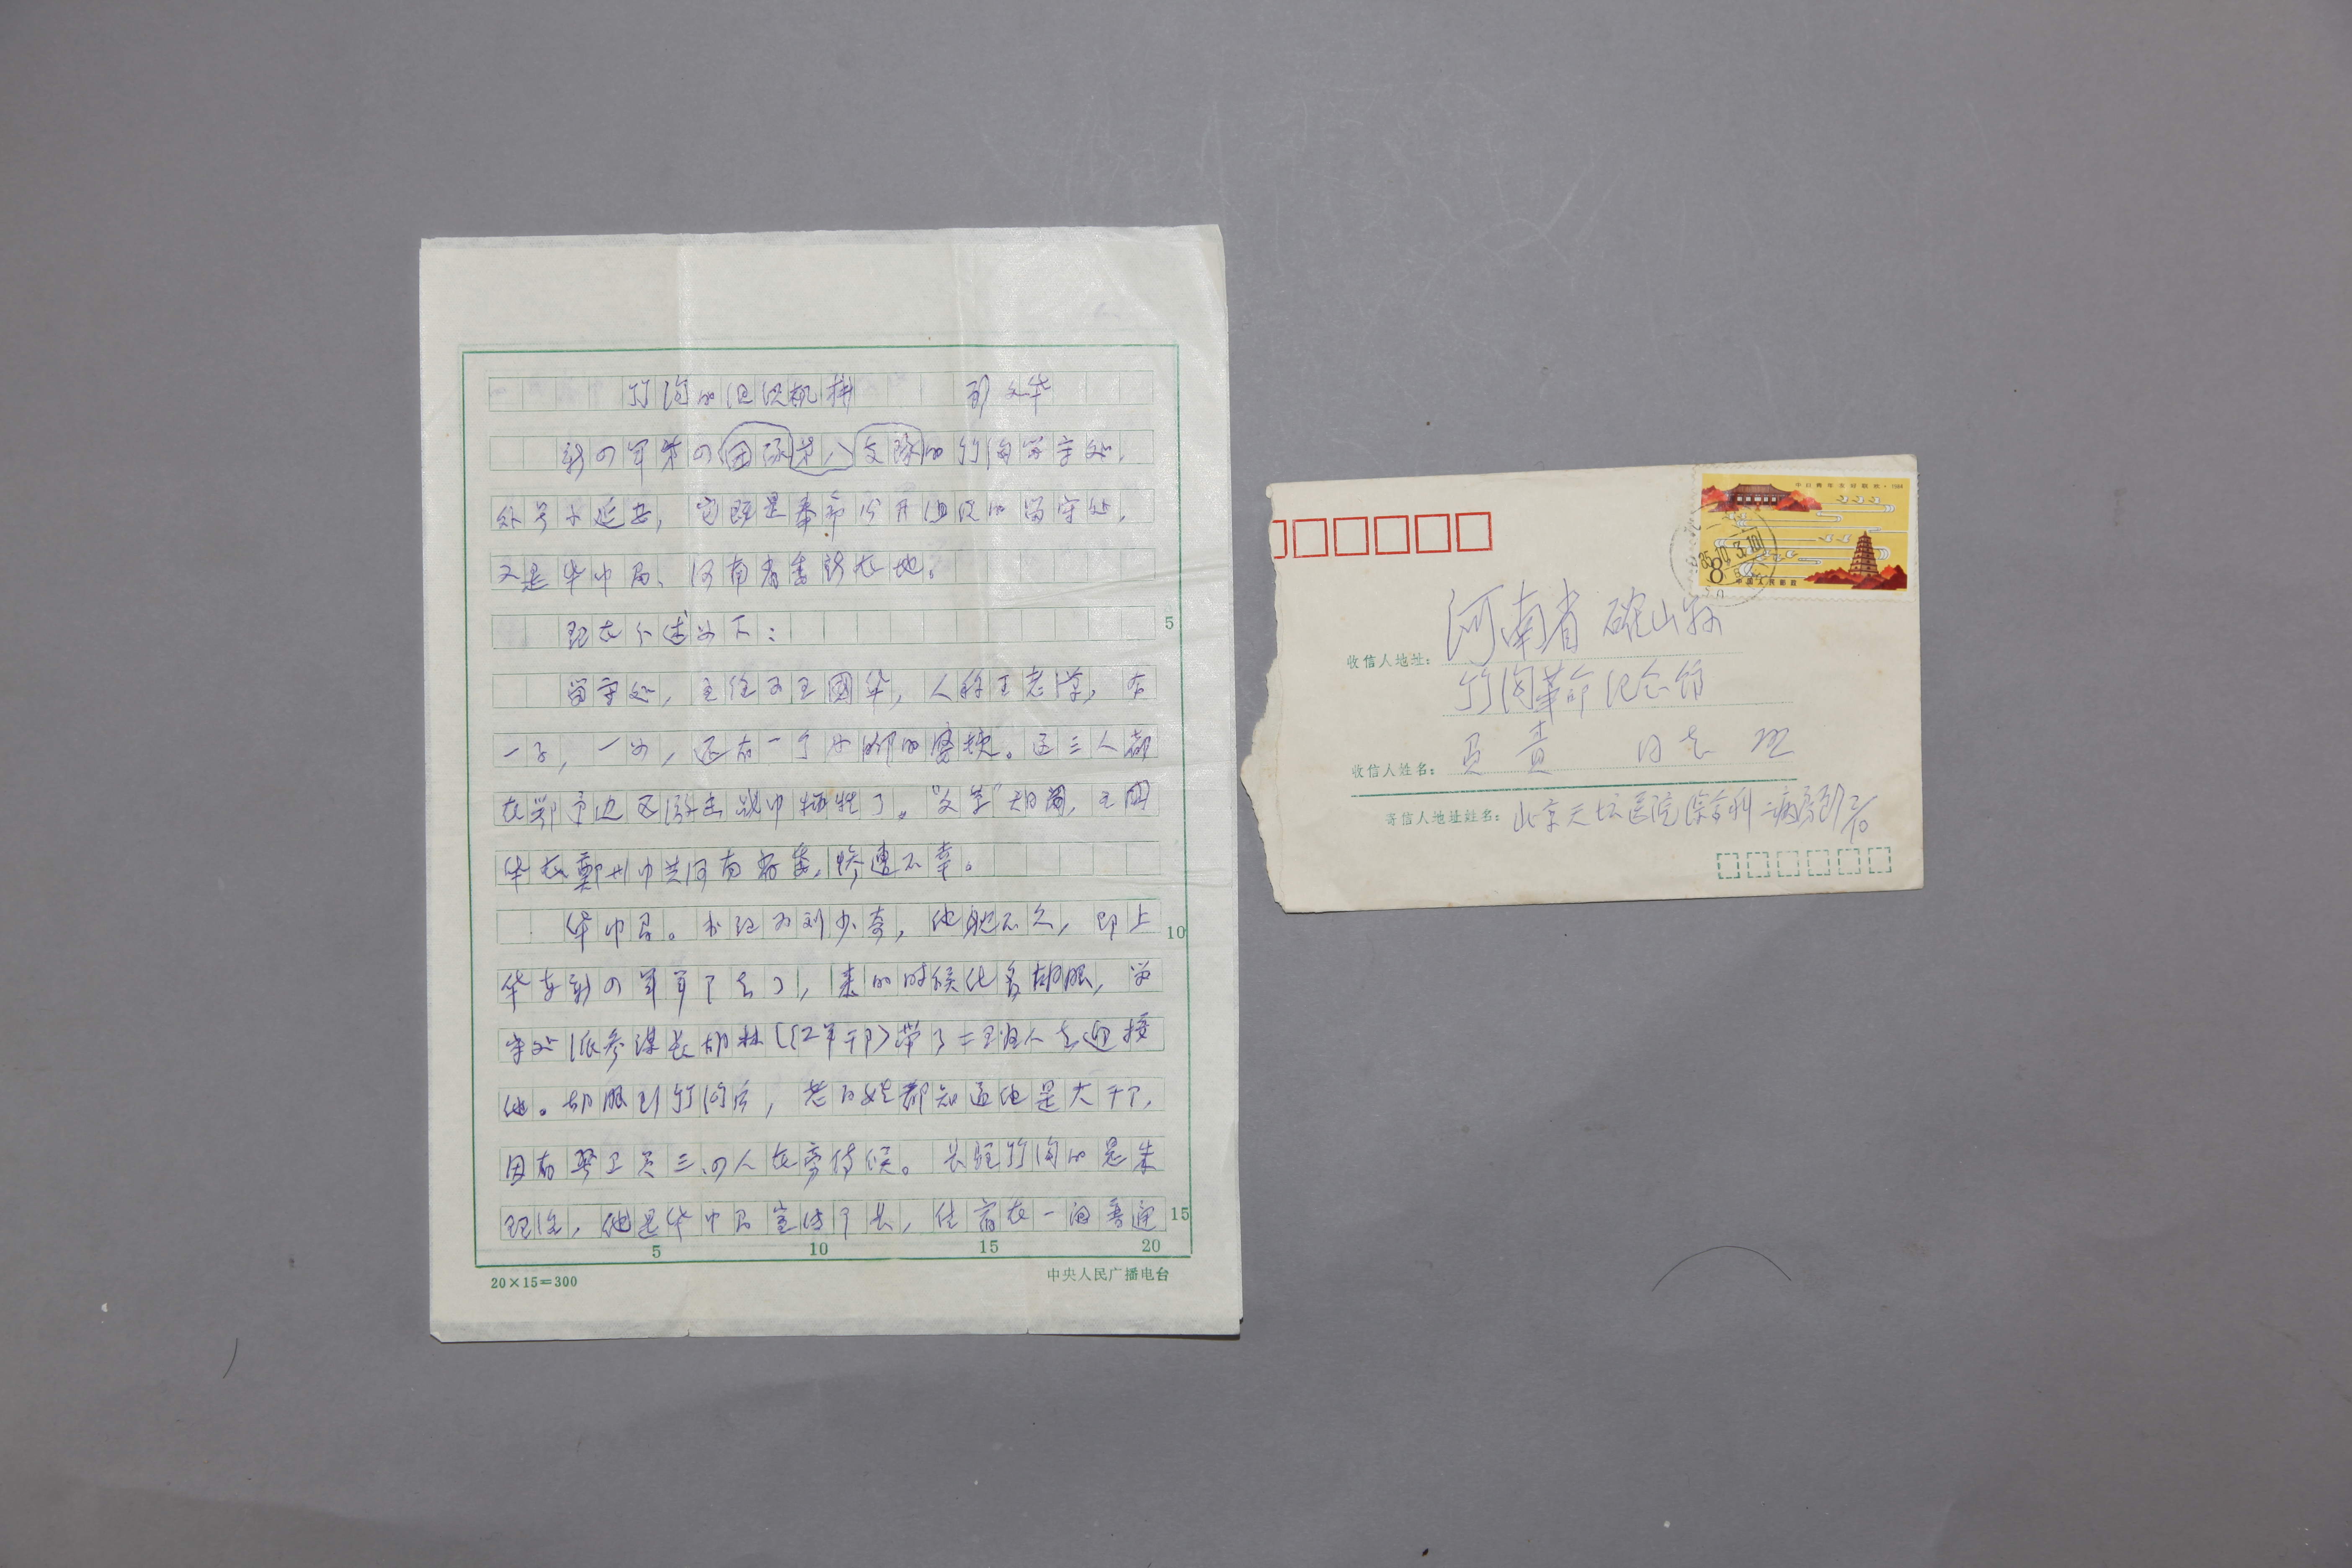 竹沟的组织机构 郭文华
新四军第四团队第八支队的竹沟留守处，
外号小延安，它既是奉命公开建设的留守处，
又是华中局、河南省委所在地。
现在分述如下：
留守处，主任为王國华，人称王老汉，有
一子，一女，还有一个小脚的老妻。这三人都
在鄂豫边区游击战中牺牲了。“文革”期间，王國
华在郑州中共河南省委，惨遭不幸。
华中局。书记为刘少奇，他到不久，即上
华东新四军军部去了，来的时候化名胡服，留
守处派参谋长胡林（红军干部）带了一班人去迎接
他。胡服到竹沟后，老百姓都知道他是大干部，
因有警卫员三、四人在旁侍候。长驻竹沟的是朱
理治，他是华中局宣传部长，住宿在一间普通
5
10
15
5 10 15 20
20×15=300
中央人民广播电台
中日青年友好联欢·1984
8
中国人民邮政
85.10.3.10
收信人地址：河南省 确山县
竹沟革命纪念馆
收信人姓名： 贵 同志
寄信人地址姓名：北京天坛医院综合科二病房郭